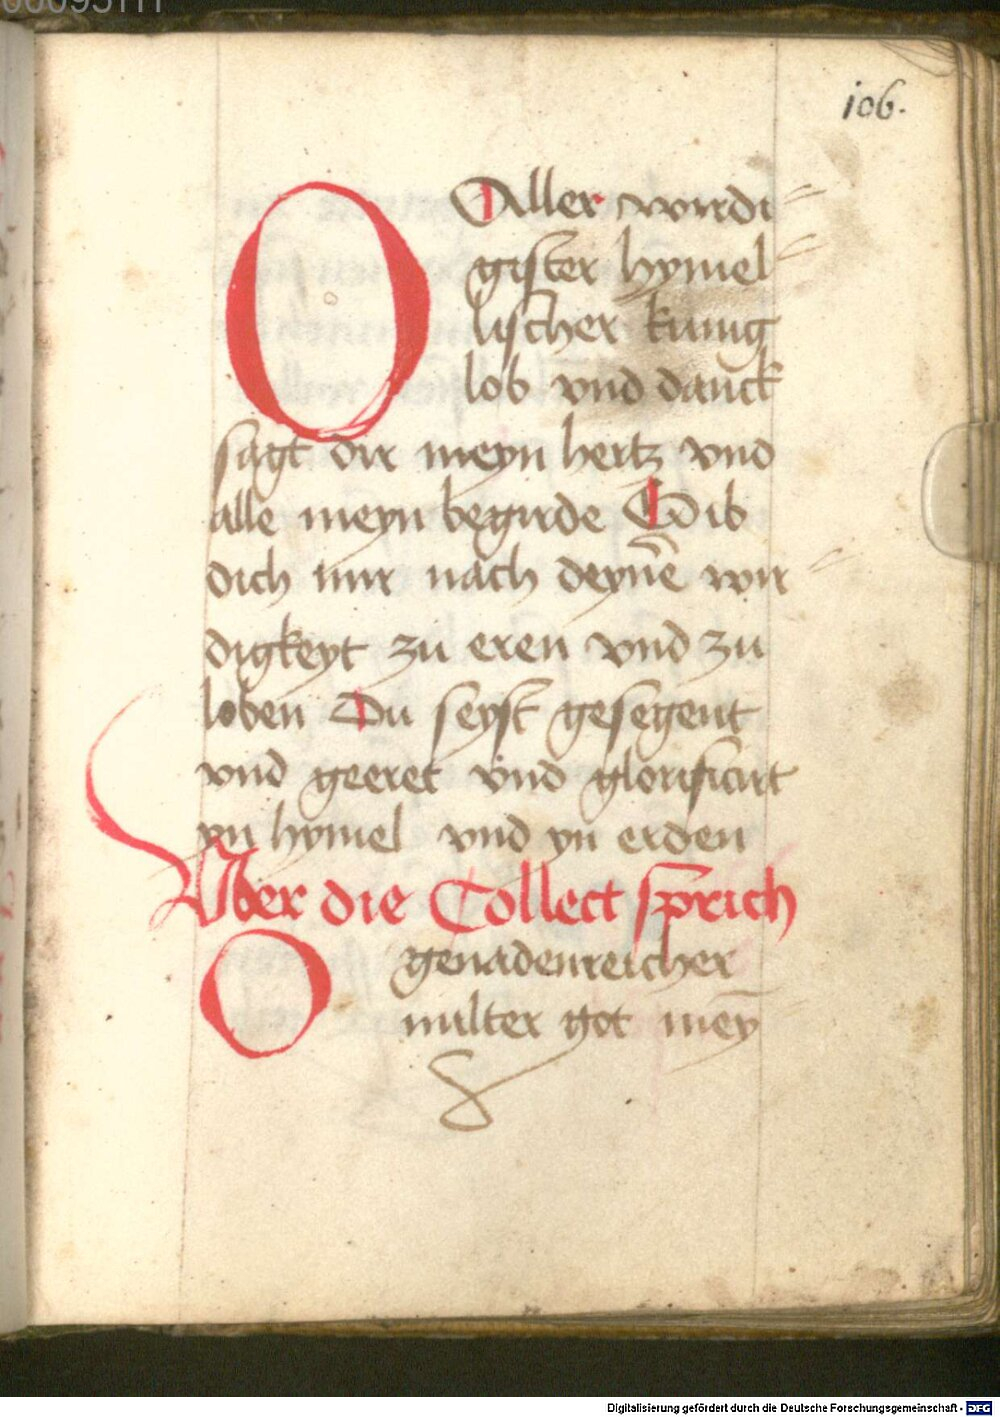 106.
O Aller wirdi=
gister hymel=
lischer kunig
lob vnd danck
sagt dir meyn hertz vnd
alle meyn begirde Gib
dich mir nach deyne᷉ wir=
digkeyt zu eren vnd zu
loben Du seyst gesegent
vnd geeret vnd glorificirt
yn hymel vnd yn erden
Vber die Collect sprich
O genadenreicher
milter got mey̅
Digitalisierung gefördert durch die Deutsche Forschungsgemeinschaft - DFG